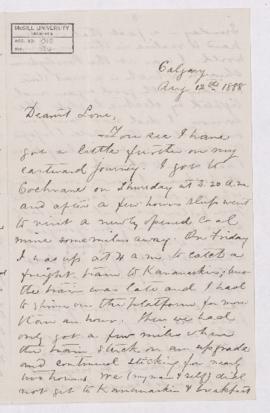 McGILL UNIVERSITY
ARCHIVES
ACC. NO.
REF.
Calgary
Aug 12th 1888
Dearest Love,
You see I have
got a little further on my
eastward journey. I got to
Cochrane on Thursday at 3.20 a.m.
and after a few hours sleep went
to visit a newly opened coal
mine some miles away. On Friday
I was up at 4 a.m. to catch a
freight train to Kananaskis, but
the train was late and I had
to shiver on the platform for more
than an hour. Then we had
only got a few miles when
the train stuck on an upgrade
and continued sticking for nearly
two hours. We (myself & self) did
not get to Kananaskis & breakfast